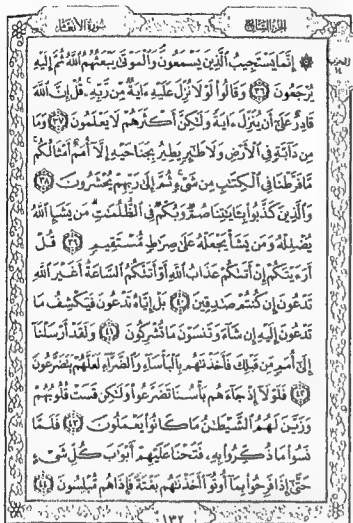 الجزء السابع
سورة الأنعام
۞ إِنَّمَا يَسْتَجِيبُ الَّذِينَ يَسْمَعُونَ وَالْمَوْتَىٰ يَبْعَثُهُمُ اللَّهُ ثُمَّ إِلَيْهِ
يُرْجَعُونَ ﴿٣٦﴾ وَقَالُوا لَوْلَا نُزِّلَ عَلَيْهِ ءَايَةٌ مِّن رَّبِّهِ ۚ قُلْ إِنَّ اللَّهَ
قَادِرٌ عَلَىٰ أَن يُنَزِّلَ ءَايَةً وَلَٰكِنَّ أَكْثَرَهُمْ لَا يَعْلَمُونَ ﴿٣٧﴾ وَمَا
مِن دَآبَّةٍ فِي الْأَرْضِ وَلَا طَٰٓئِرٍ يَطِيرُ بِجَنَاحَيْهِ إِلَّآ أُمَمٌ أَمْثَالُكُم
مَّا فَرَّطْنَا فِي الْكِتَٰبِ مِن شَيْءٍ ثُمَّ إِلَىٰ رَبِّهِمْ يُحْشَرُونَ ﴿٣٨﴾
وَالَّذِينَ كَذَّبُوا بِـَٔايَٰتِنَا صُمٌّ وَبُكْمٌ فِي الظُّلُمَٰتِ ۗ مَن يَشَإِ اللَّهُ
يُضْلِلْهُ وَمَن يَشَأْ يَجْعَلْهُ عَلَىٰ صِرَٰطٍ مُّسْتَقِيمٍ ﴿٣٩﴾ قُلْ
أَرَءَيْتَكُمْ إِنْ أَتَىٰكُمْ عَذَابُ اللَّهِ أَوْ أَتَتْكُمُ السَّاعَةُ أَغَيْرَ اللَّهِ
تَدْعُونَ إِن كُنتُمْ صَٰدِقِينَ ﴿٤٠﴾ بَلْ إِيَّاهُ تَدْعُونَ فَيَكْشِفُ مَا
تَدْعُونَ إِلَيْهِ إِن شَآءَ وَتَنسَوْنَ مَا تُشْرِكُونَ ﴿٤١﴾ وَلَقَدْ أَرْسَلْنَآ
إِلَىٰٓ أُمَمٍ مِّن قَبْلِكَ فَأَخَذْنَٰهُم بِالْبَأْسَآءِ وَالضَّرَّآءِ لَعَلَّهُمْ يَتَضَرَّعُونَ
﴿٤٢﴾ فَلَوْلَآ إِذْ جَآءَهُم بَأْسُنَا تَضَرَّعُوا وَلَٰكِن قَسَتْ قُلُوبُهُمْ
وَزَيَّنَ لَهُمُ الشَّيْطَٰنُ مَا كَانُوا يَعْمَلُونَ ﴿٤٣﴾ فَلَمَّا
نَسُوا مَا ذُكِّرُوا بِهِ فَتَحْنَا عَلَيْهِمْ أَبْوَٰبَ كُلِّ شَيْءٍ
حَتَّىٰٓ إِذَا فَرِحُوا بِمَآ أُوتُوٓا أَخَذْنَٰهُم بَغْتَةً فَإِذَا هُم مُّبْلِسُونَ ﴿٤٤﴾
١٣٢